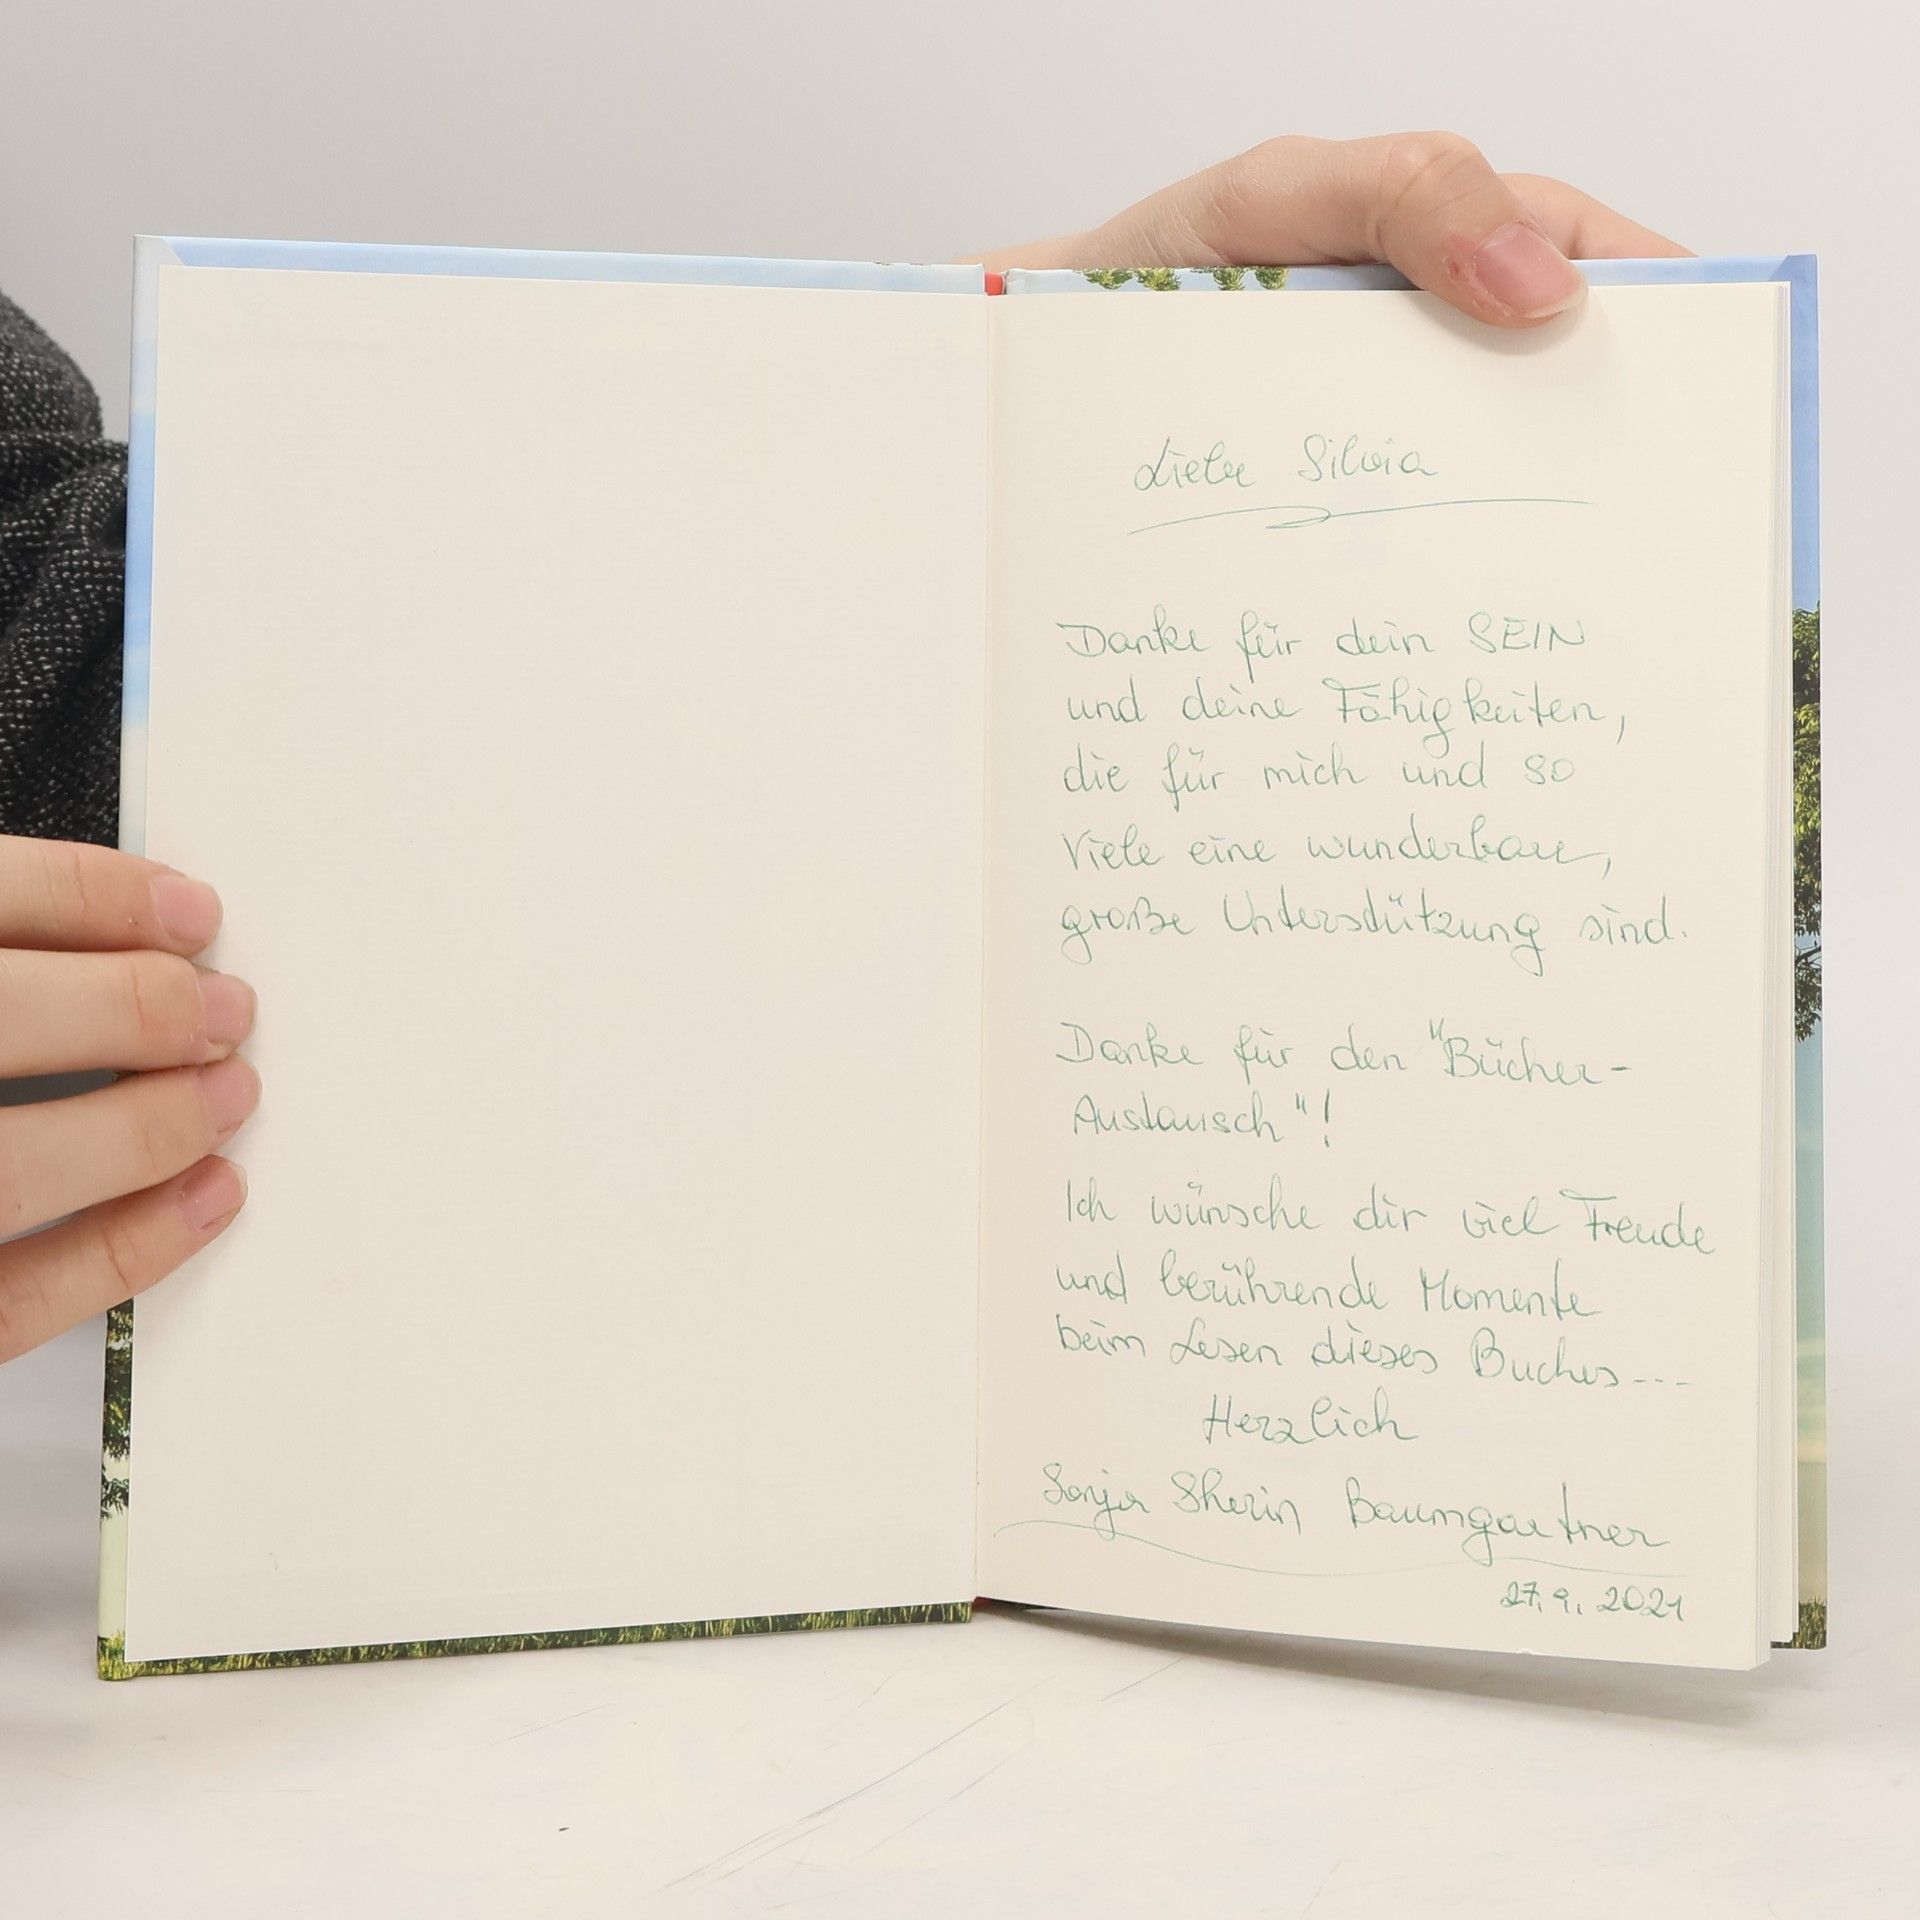 Liebe Silvia
Danke für dein SEIN
und deine Fähigkeiten,
die für mich und so
Viele eine wunderbare,
große Unterstützung sind.
Danke für den "Bücher-
Austausch"!
Ich wünsche dir viel Freude
und berührende Momente
beim Lesen dieses Buches---
Herzlich
Sonja Sherin Baumgartner
27.9.2021